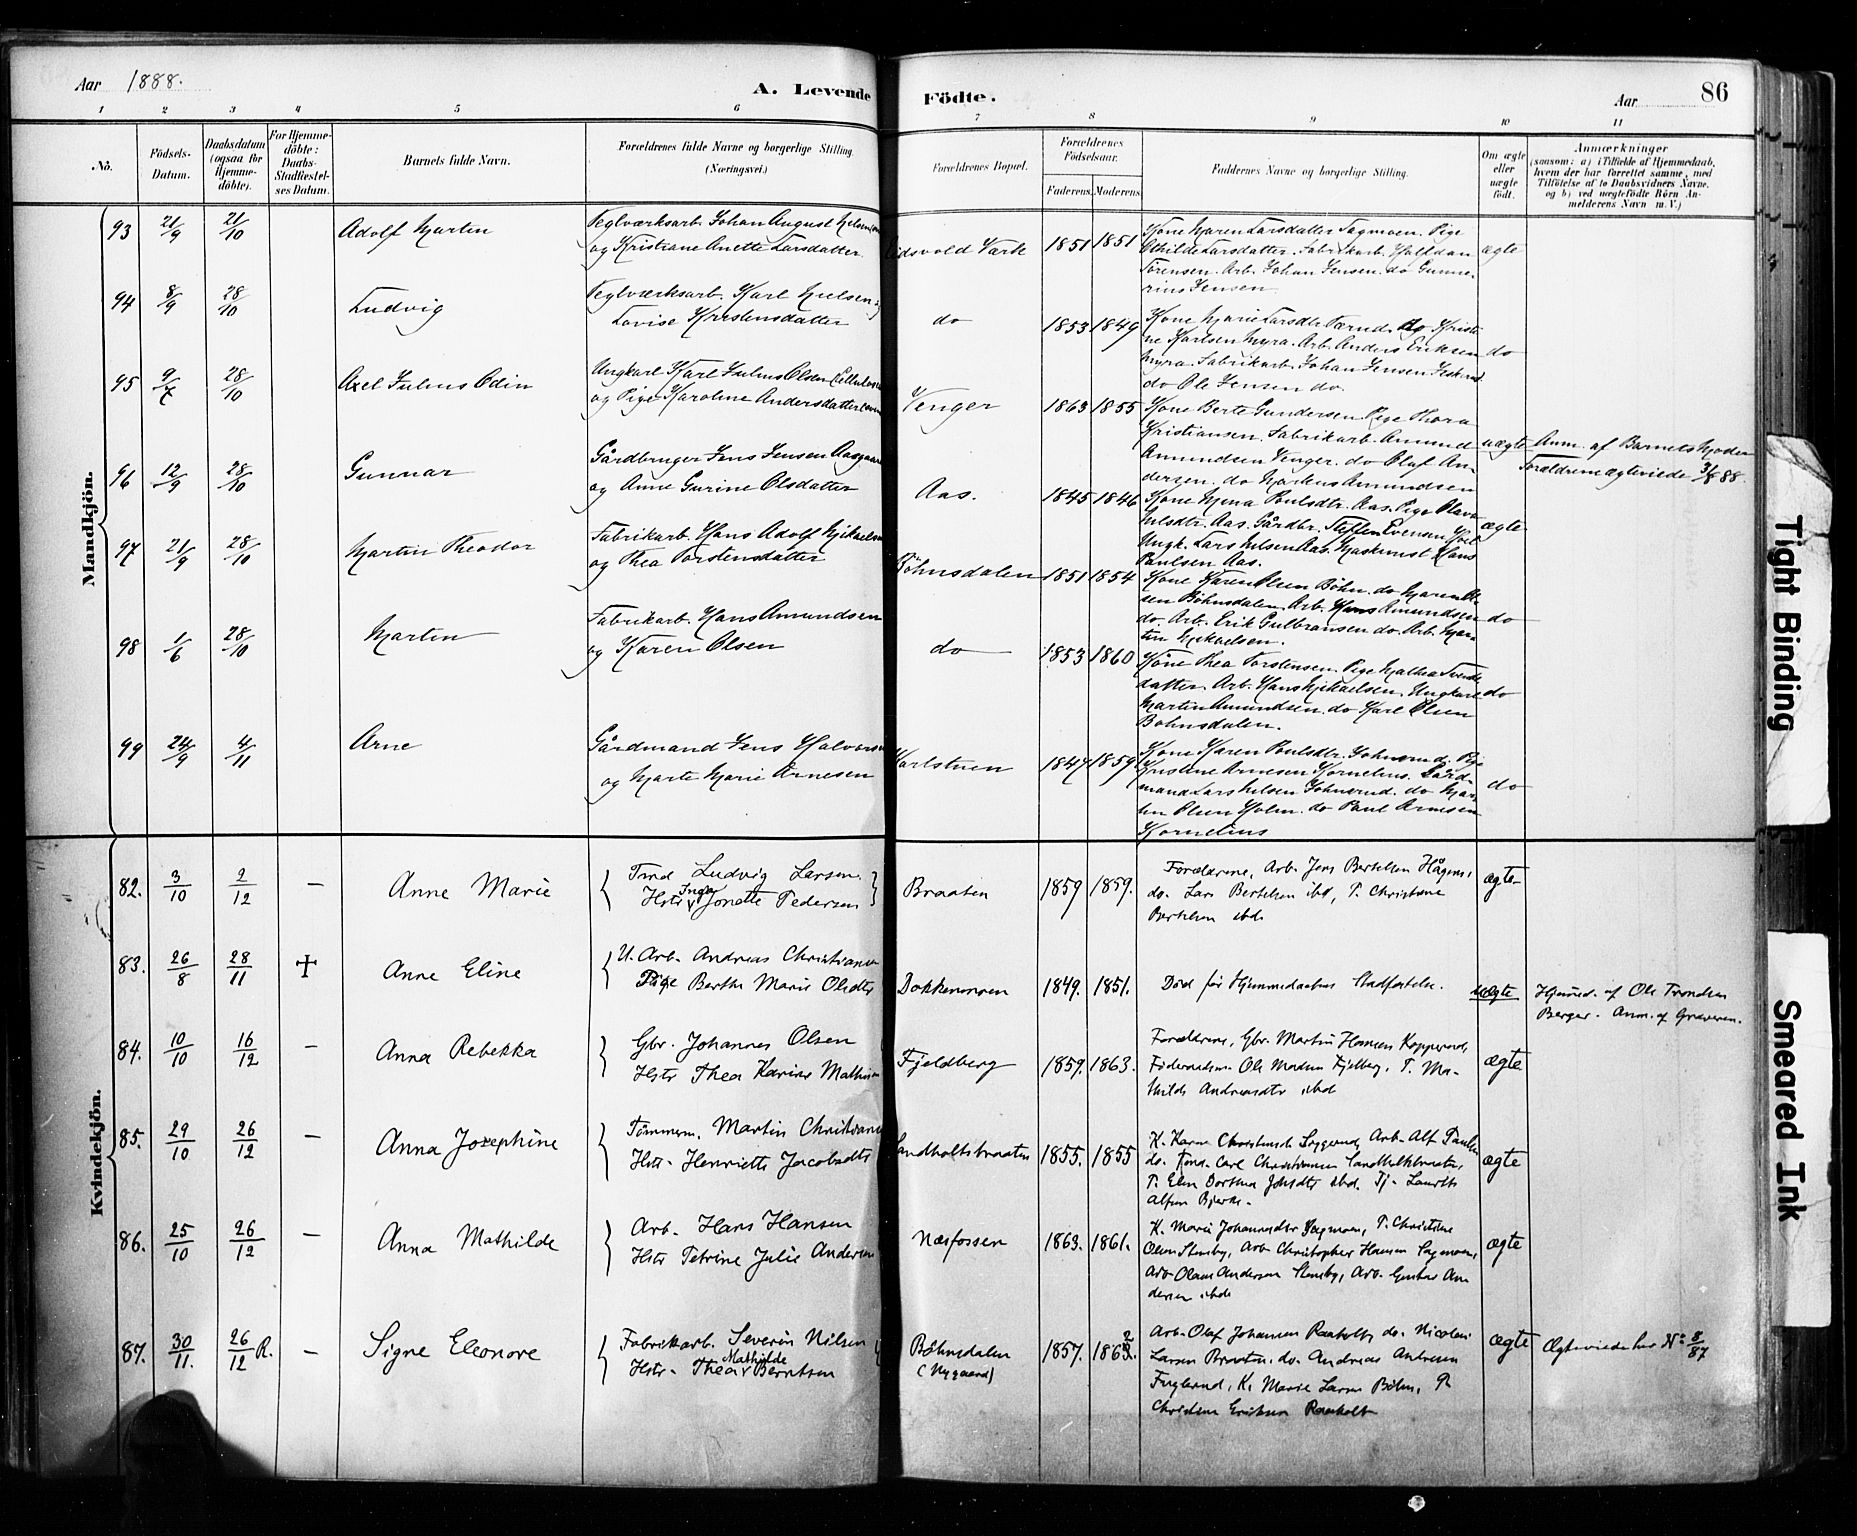 Aar 1888.
A. Levende
Födte.
Aar
86
1 2 3 4 5 6 7 8 9 10 11
No.
Födsels-Datum.
Daabsdatum (ogsaa for Hjemme-döbte).
For Hjemme-döbte: Daabs-Stadfæstel-ses Datum.
Barnets fulde Navn.
Forældrenes fulde Navne og borgerlige Stilling. (Næringsvei.)
Forældrenes Bopæl.
Forældrenes Födselsaar.
Faderens. Moderens.
Faddernes Navne og borgerlige Stilling.
Om ægte eller uægte födt.
Anmærkninger
(saasom: a) i Tilfælde af Hjemmedaab,
hvem der har forrettet samme, med
Tilföielse af to Daabsvidners Navne,
og b) ved uægtefödte Börn An-
melderens Navn m. V.)
Mandkjön.
93 21/9 21/10 Adolf Martin
Teglværksarb. Johan August Nilsen
og Kristiane Anette Larsdatter
Eidsvold Værk 1851 1851
Kone Maren Larsdatter Sagmoen. Pige
Othilde Larsdatter. Fabrikarb. Halfdan
Sörensen. Arb. Johan Jensen. do Gunne-
rius Jensen
ægte
94 8/9 28/10 Ludvig
Teglværksarb. Karl Nielsen og
Lovise Kristensdatter
do 1853 1849
Kone Marie Larsdtr do Kristi-
ne Karlsen Myra. Arb. Anders Eriksen
Myra. Fabrikarb. Johan Jensen
do Ole Jensen do.
do
95 9/7 28/10 Axel Julius Odin
Ungkarl Karl Julius Olsen
og Pige Karoline Andersdatter
Venger 1863 1855
Kone Berte Gundersen. Pige Thora
Kristiansen. Fabrikarb. Amund
Amundsen Venger. do Olaf An-
dersen. do Markus Amundsen
uægte
Anm. af Barnets Moder
Forældrene ægteviede 3/8 88.
96 12/9 28/10 Gunnar
Gårdbruger Jens Jensen Aasgaard
og Anne Gurine Olsdatter
Aas. 1845 1846
Kone Mina Poulsdtr. Aas. Pige Olava
Nilsdtr. Aas. Gårdbr. Steffen Evensen
Ungk. Lars Nilsen Aas. Maskinist Hans
Paulsen Aas.
ægte
97 21/9 28/10 Martin Theodor
Fabrikarb. Hans Adolf Mikaelsen
og Thea Torstensdatter
Böhnsdalen 1851 1854
Kone Karen Olsen Böhn. do Maren Ol-
sen Böhnsdalen. Arb. Hans Amundsen
do. Arb. Erik Gulbransen do. Arb. Mar-
tin Mikaelsen.
do
98 1/6 28/10 Martin
Fabrikarb. Hans Amundsen
og Karen Olsen
do 1853 1860
Kone Thea Torstensen. Pige Mathea Svends-
datter. Arb. Hans Mikaelsen. Ungkarl
Martin Amundsen. do Karl Olsen
Böhnsdalen.
do
99 24/9 4/11 Arne
Gårdmand Jens Halvorsen
og Marte Marie Arnesen
Karlstuen 1847 1859
Kone Karen Poulsdtr. Pige
Kristine Arnesen Kornelius. Gård-
mand Lars Nilsen do Mar-
tin Olsen Holm. do Paul Arnesen
Kornelius
do
Kvindekjön.
82. 3/10 2/12 – Anne Marie
Tmd Ludvig Larsen.
Hstr Inger Jonette Pedersen
Braaten 1859 1859.
Forældrene, Arb. Jens Bertelsen Hågens,
do. Lars Bertelsen ibd, P. Christine
Bertelsen ibd.
ægte
83. 26/8 28/11 + Anne Eline
U. Arb. Andreas Christiansen
Pige Berthe Marie Olsdtr
Dokkenmoen 1849. 1851.
Död för Hjemmedaabens Stadfæstelse.
Uægte
Hjemmed. af Ole Trondsen
Berger. Anm. af Graveren.
84. 10/10 16/12 – Anna Rebekka
Gbr. Johannes Olsen
Hstr Thea Karine Mathisen
Fjeldberg 1859. 1863.
Forældrene, Gbr. Martin Hansen Kopperud,
Ole Madsen Fjelberg, P. Ma-
thilde Andreasdtr ibd
ægte
85. 29/10 26/12 – Anna Josephine
Tömmerm. Martin Christiansen
Hstr. Henriette Jacobsdtr
Landholtsbraaten 1855. 1855
K. Karen Christiansd. Arb. Alf Paulsen
do. Carl Christiansen Landholtsbraaten,
P. Elen Dorthea ibd. Tj. Laurits
Alfsen Bjerke.
ægte
86. 25/10 26/12 – Anna Mathilde
Arb. Hans Hansen
Hstr Petrine Julie Andersen
Næsfossen 1863. 1861.
K. Marie Johannesdtr Sagmoen, P. Christine
Olsen Stensby, Arb. Christopher Hansen Sagmoen,
Arb. Olaus Andersen Stensby, Arb. Gustav An-
dersen ibd
ægte
87. 30/11. 26/12 R. – Signe Eleonore
Fabrikarb. Severin Nilsen
Hstr. Thea Mathilde Berntsen
Böhnsdalen (Nygaard) 1857. 1862.
Arb. Olaf Johansen Raaholt, do. Nicolai
Larsen Braaten, do. Andreas Andresen
Fuglerud, K. Marie Larsen Böhn, P.
Christine Eriksen Raaholt
ægte
Ægteviede her No: 8/87
Tight Binding
Smeared Ink